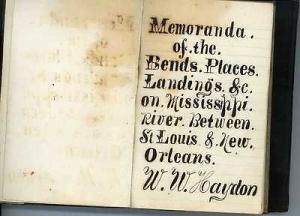 Memoranda.
of. the.
Bends. Places.
Landings. &c.
on. Mississippi.
River. Between.
St Louis. & New.
Orleans.
W. W. Haydon